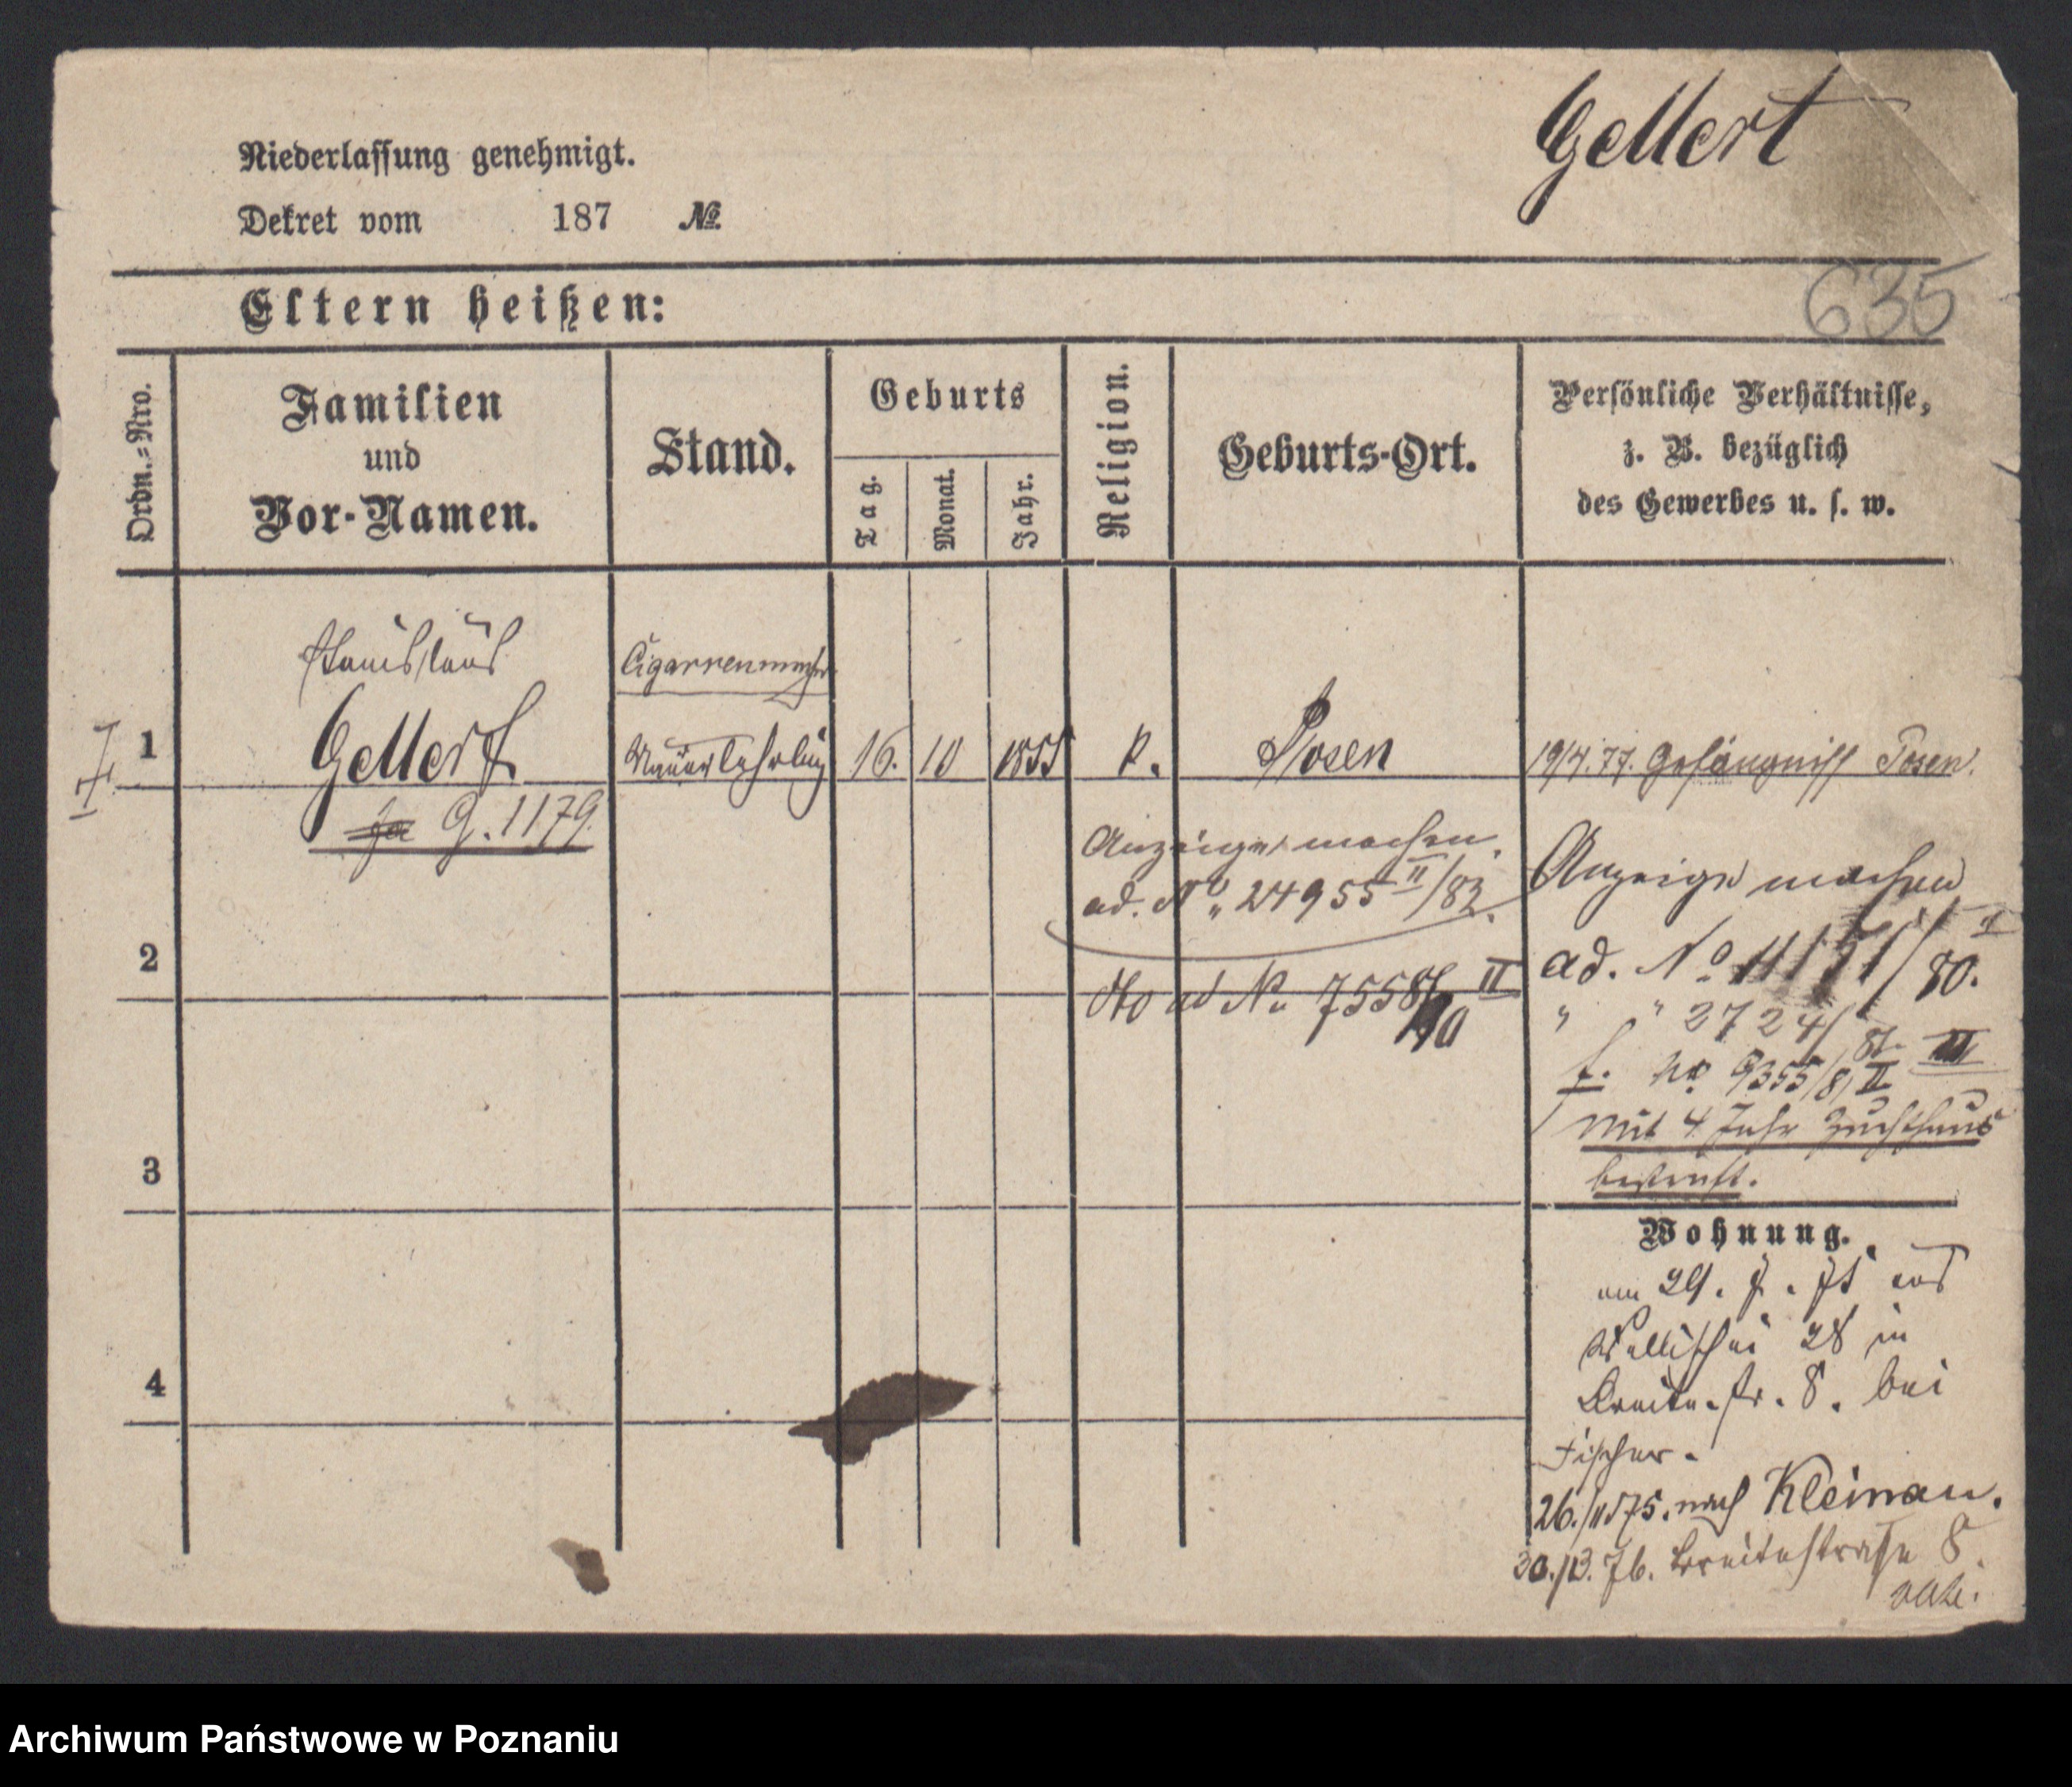 Gellert
Niederlassung genehmigt.
Dekret vom 187 №
635
Eltern heißen:
Ordn.-Nro.
Familien
und
Vor-Namen.
Stand.
Geburts
Tag.
Monat.
Jahr.
Religion.
Geburts-Ort.
Persönliche Verhältnisse,
z. B. bezüglich
des Gewerbes u. s. w.
Stanislaus
Cigarrenmacher
1 Gellert Maurerlehrling 16. 10 1855 k. Posen 19/4.77. Gefängniß Posen.
G. 1179.
Anzeige machen.
ad. No 24955 II/82.
dto ad No 7558 II
Anzeige machen
ad. No 11151/80. II
" " 2724/81. III
f. No 9355/81 II
Mit 4 Jahr Zuchthaus
bestraft.
2
3
4
Wohnung.
am 29. 7. 75 aus
Wallischei 28 in
Breite-str. 8. bei
Fischer.
26./11 75. nach Kleinau.
30./3. 76. Breitestraße 8.